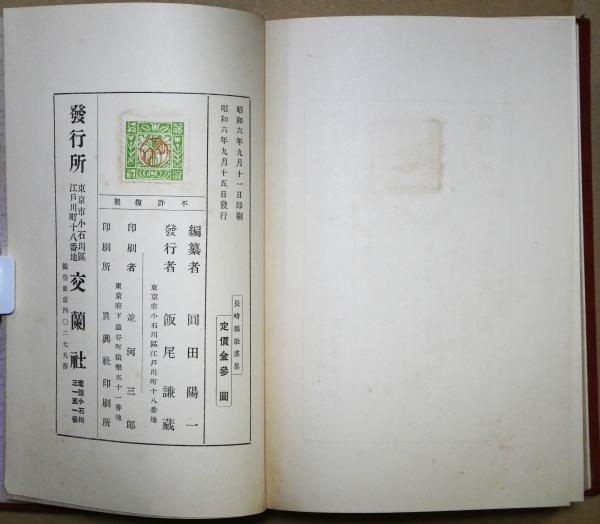 昭和六年九月十一日印刷
昭和六年九月十五日發行
長崎縣歌謠集
定價金參圓
不許複製
編纂者 圓田陽一
發行者 飯尾謙藏
東京市小石川區江戸川町十八番地
印刷者 並河三郎
東京府下澁谷町猿樂五十一番地
印刷所 眞興社印刷所
發行所
東京市小石川區
江戸川町十八番地
交蘭社
振替東京四〇二七九番
電話小石川
三一五一番